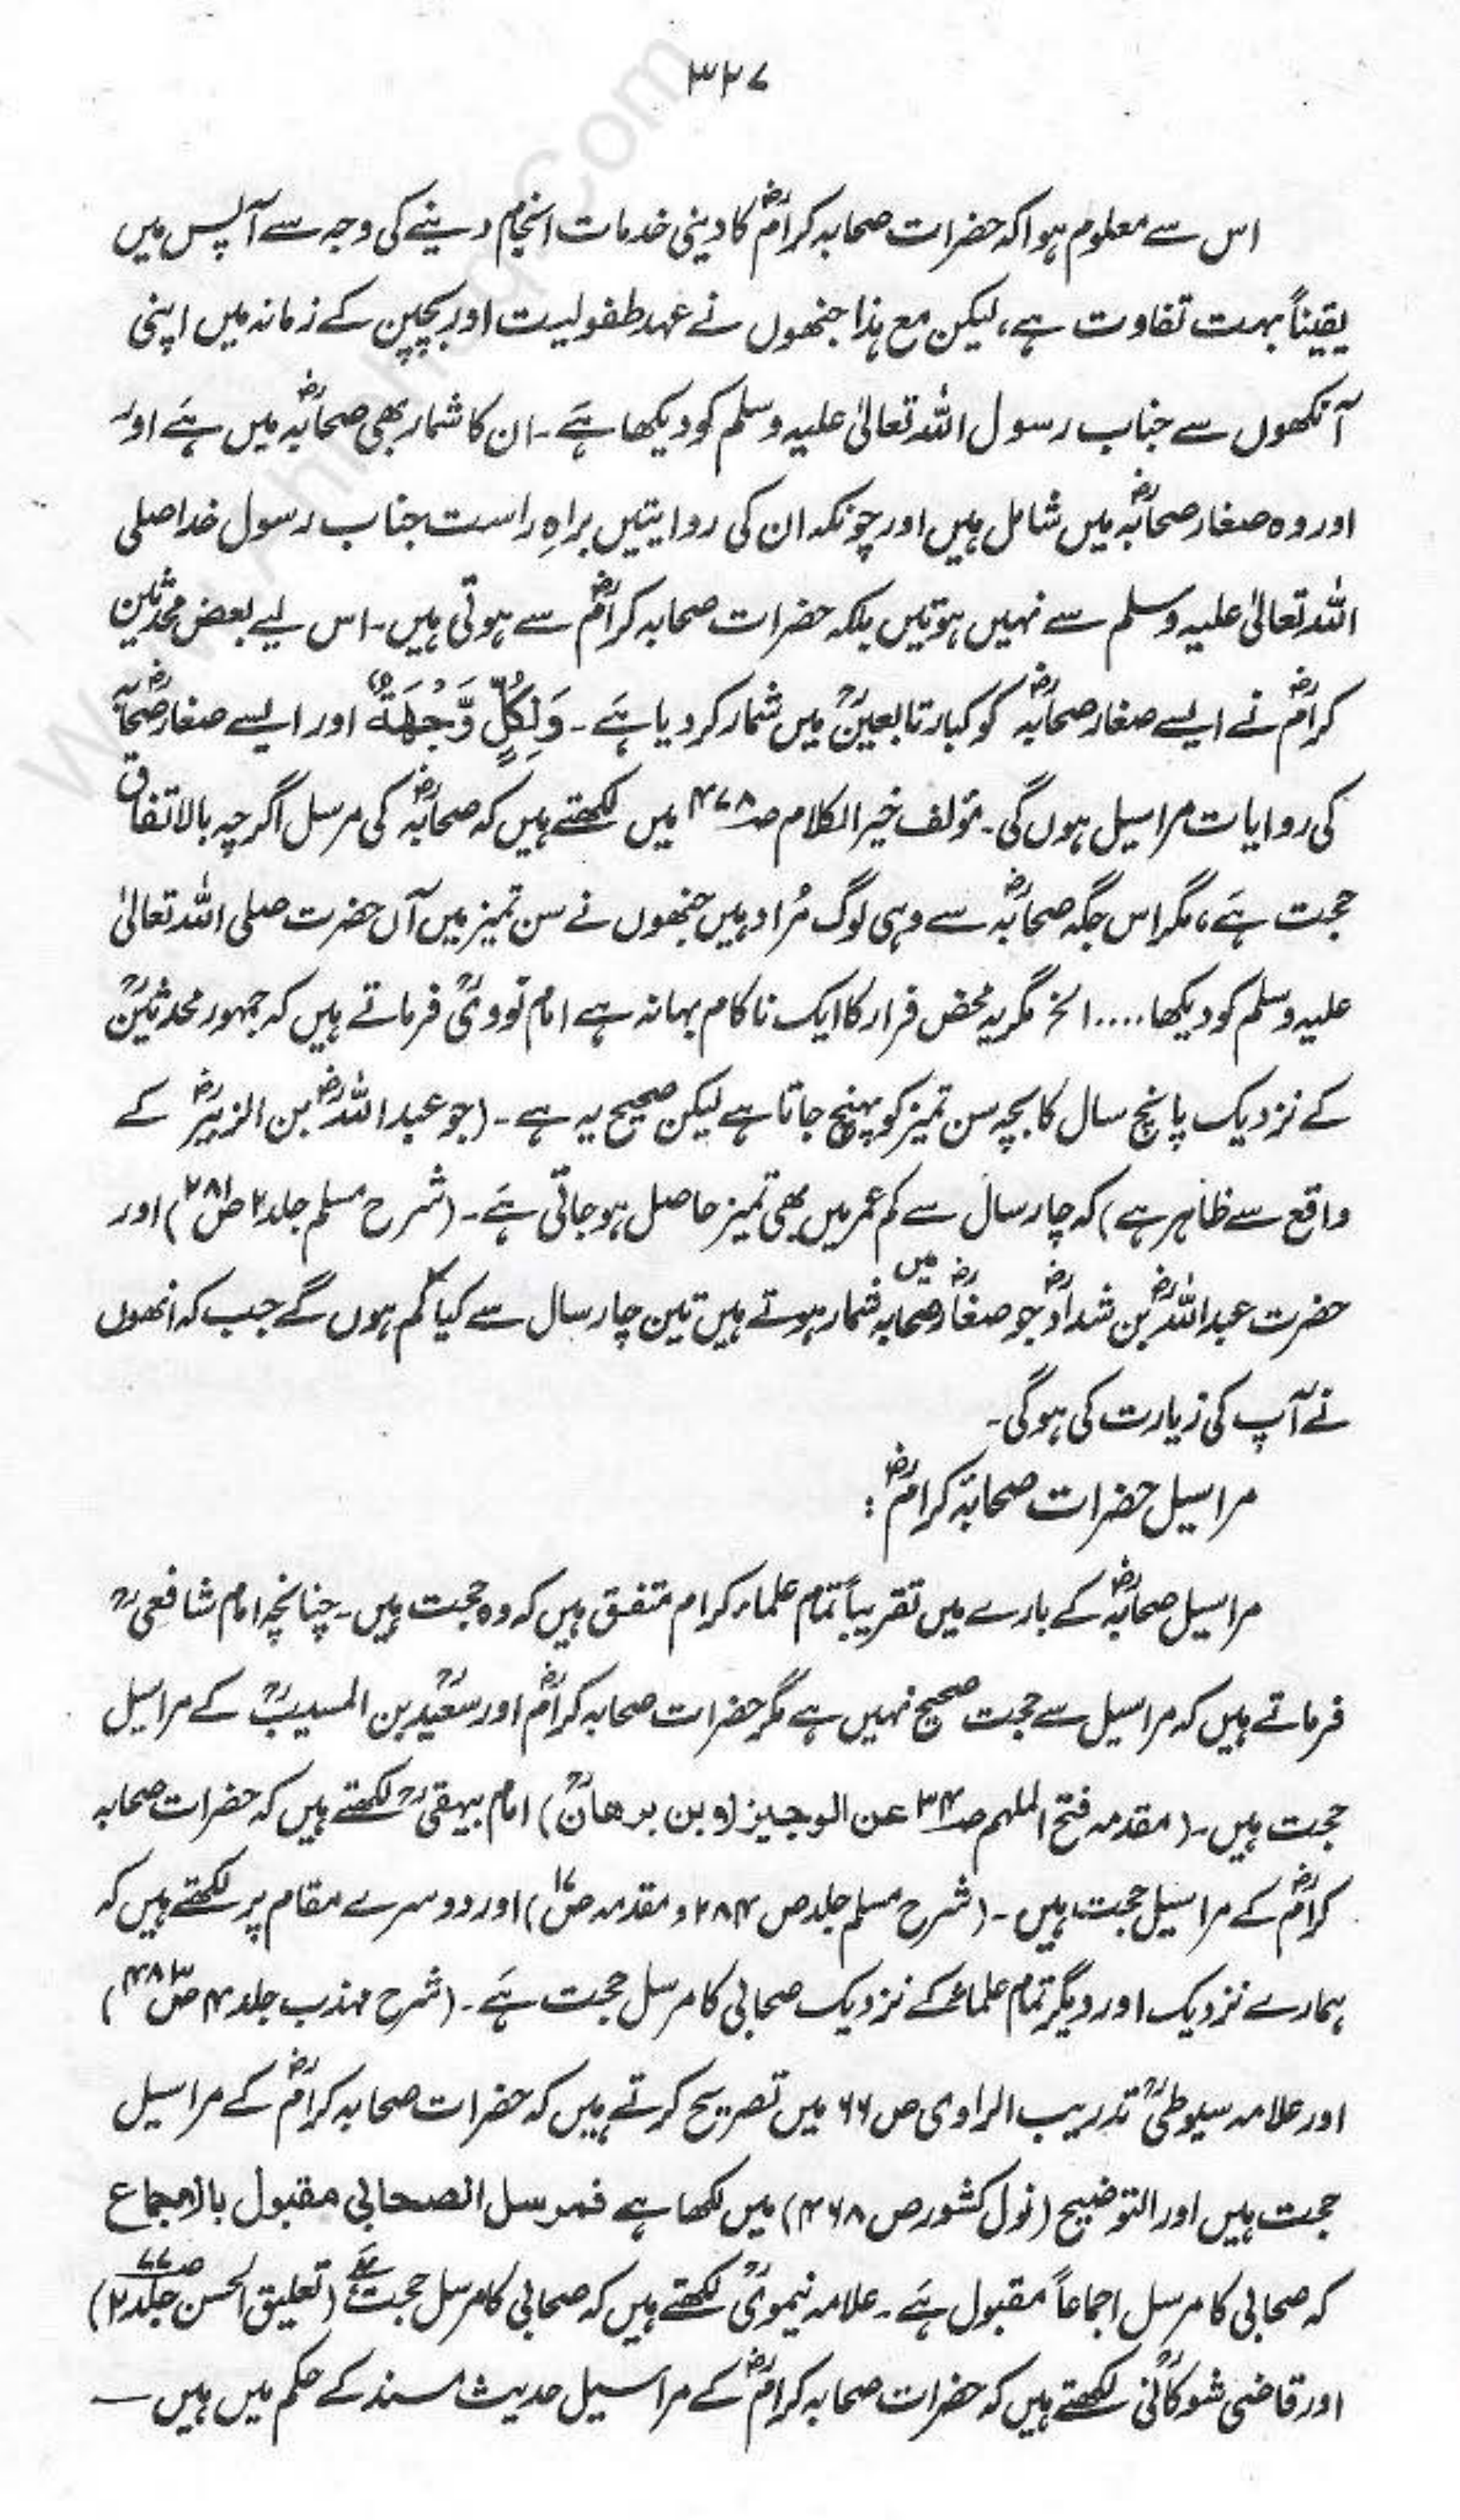 ۳۲۷
اس سے معلوم ہوا کہ حضرات صحابہ کرامؓ کا دینی خدمات انجام دینے کی وجہ سے آپس میں
یقیناً بہت تفاوت ہے، لیکن مع ہذا جنھوں نے عہد طفولیت اور بچپن کے زمانہ میں اپنی
آنکھوں سے جناب رسول اللہ تعالیٰ علیہ وسلم کو دیکھا ہے۔ ان کا شمار بھی صحابہؓ میں ہے اور
اور وہ صغار صحابہؓ میں شامل ہیں اور چونکہ ان کی روایتیں براہِ راست جناب رسول خدا صلی
اللہ تعالیٰ علیہ وسلم سے نہیں ہوتیں بلکہ حضرات صحابہ کرامؓ سے ہوتی ہیں۔ اس لیے بعض محدثین
کرامؓ نے ایسے صغار صحابہؓ کو کبار تابعینؒ میں شمار کر دیا ہے۔ وَلِکُلٍّ وِّجْهَةٌ اور ایسے صغار صحابہؓ
کی روایات مراسیل ہوں گی۔ مؤلف خیر الکلام صـ۴۷۸ میں لکھتے ہیں کہ صحابہؓ کی مرسل اگرچہ بالاتفاق
حجت ہے، مگر اس جگہ صحابہؓ سے وہی لوگ مُراد ہیں جنھوں نے سن تمیز میں آں حضرت صلی اللہ تعالیٰ
علیہ وسلم کو دیکھا .... الخ مگر یہ محض فرار کا ایک ناکام بہانہ ہے امام نوویؒ فرماتے ہیں کہ جمہور محدثینؒ
کے نزدیک پانچ سال کا بچہ سن تمیز کو پہنچ جاتا ہے لیکن صحیح یہ ہے۔ (جو عبداللہؓ بن الزبیرؓ کے
واقع سے ظاہر ہے) کہ چار سال سے کم عمر میں بھی تمیز حاصل ہو جاتی ہے۔ (شرح مسلم جلد۲ ص۲۸۱) اور
حضرت عبداللہؓ بن شدادؓ جو صغار صحابہؓ میں شمار ہوتے ہیں تین چار سال سے کیا کم ہوں گے جب کہ انھوں
نے آپ کی زیارت کی ہو گی۔
مراسیل حضرات صحابۂ کرامؓ :
مراسیل صحابہؓ کے بارے میں تقریباً تمام علماء کرام متفق ہیں کہ وہ حجت ہیں۔ چنانچہ امام شافعیؒ
فرماتے ہیں کہ مراسیل سے حجت صحیح نہیں ہے مگر حضرات صحابہ کرامؓ اور سعیدؒ بن المسیبؒ کے مراسیل
حجت ہیں۔ (مقدمہ فتح الملہم صـ۳۴ عن الوجیز (و بن برهانؒ) امام بیہقیؒ لکھتے ہیں کہ حضرات صحابہ
کرامؓ کے مراسیل حجت ہیں۔ (شرح مسلم جلد ص ۲۸۴ و مقدمہ ص۱۷) اور دوسرے مقام پر لکھتے ہیں کہ
ہمارے نزدیک اور دیگر تمام علماءؒ کے نزدیک صحابی کا مرسل حجت ہے۔ (شرح مہذب جلد ۴ ص۴۸۳)
اور علامہ سیوطیؒ تدریب الراوی ص ۶۶ میں تصریح کرتے ہیں کہ حضرات صحابہ کرامؓ کے مراسیل
حجت ہیں اور التوضیح (نول کشور ص ۴۶۸) میں لکھا ہے فمرسل الصحابی مقبول بالاجماع
کہ صحابی کا مرسل اجماعاً مقبول ہے۔ علامہ نیمویؒ لکھتے ہیں کہ صحابی کا مرسل حجت ہے (تعلیق الحسن جلد۲ صـ۷۷)
اور قاضی شوکانیؒ لکھتے ہیں کہ حضرات صحابہ کرامؓ کے مراسیل حدیث مسند کے حکم میں ہیں —